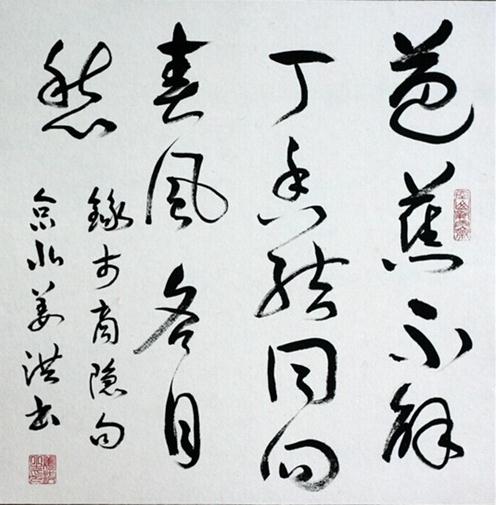 芭蕉不解
丁香结同向
春风各自
愁
錄李商隐句
京水姜洪书